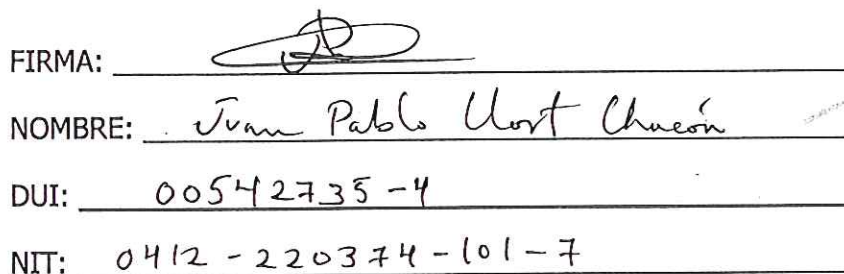 FIRMA:
NOMBRE: Juan Pablo Llort Chacón
DUI: 00542735-4
NIT: 0412-220374-101-7